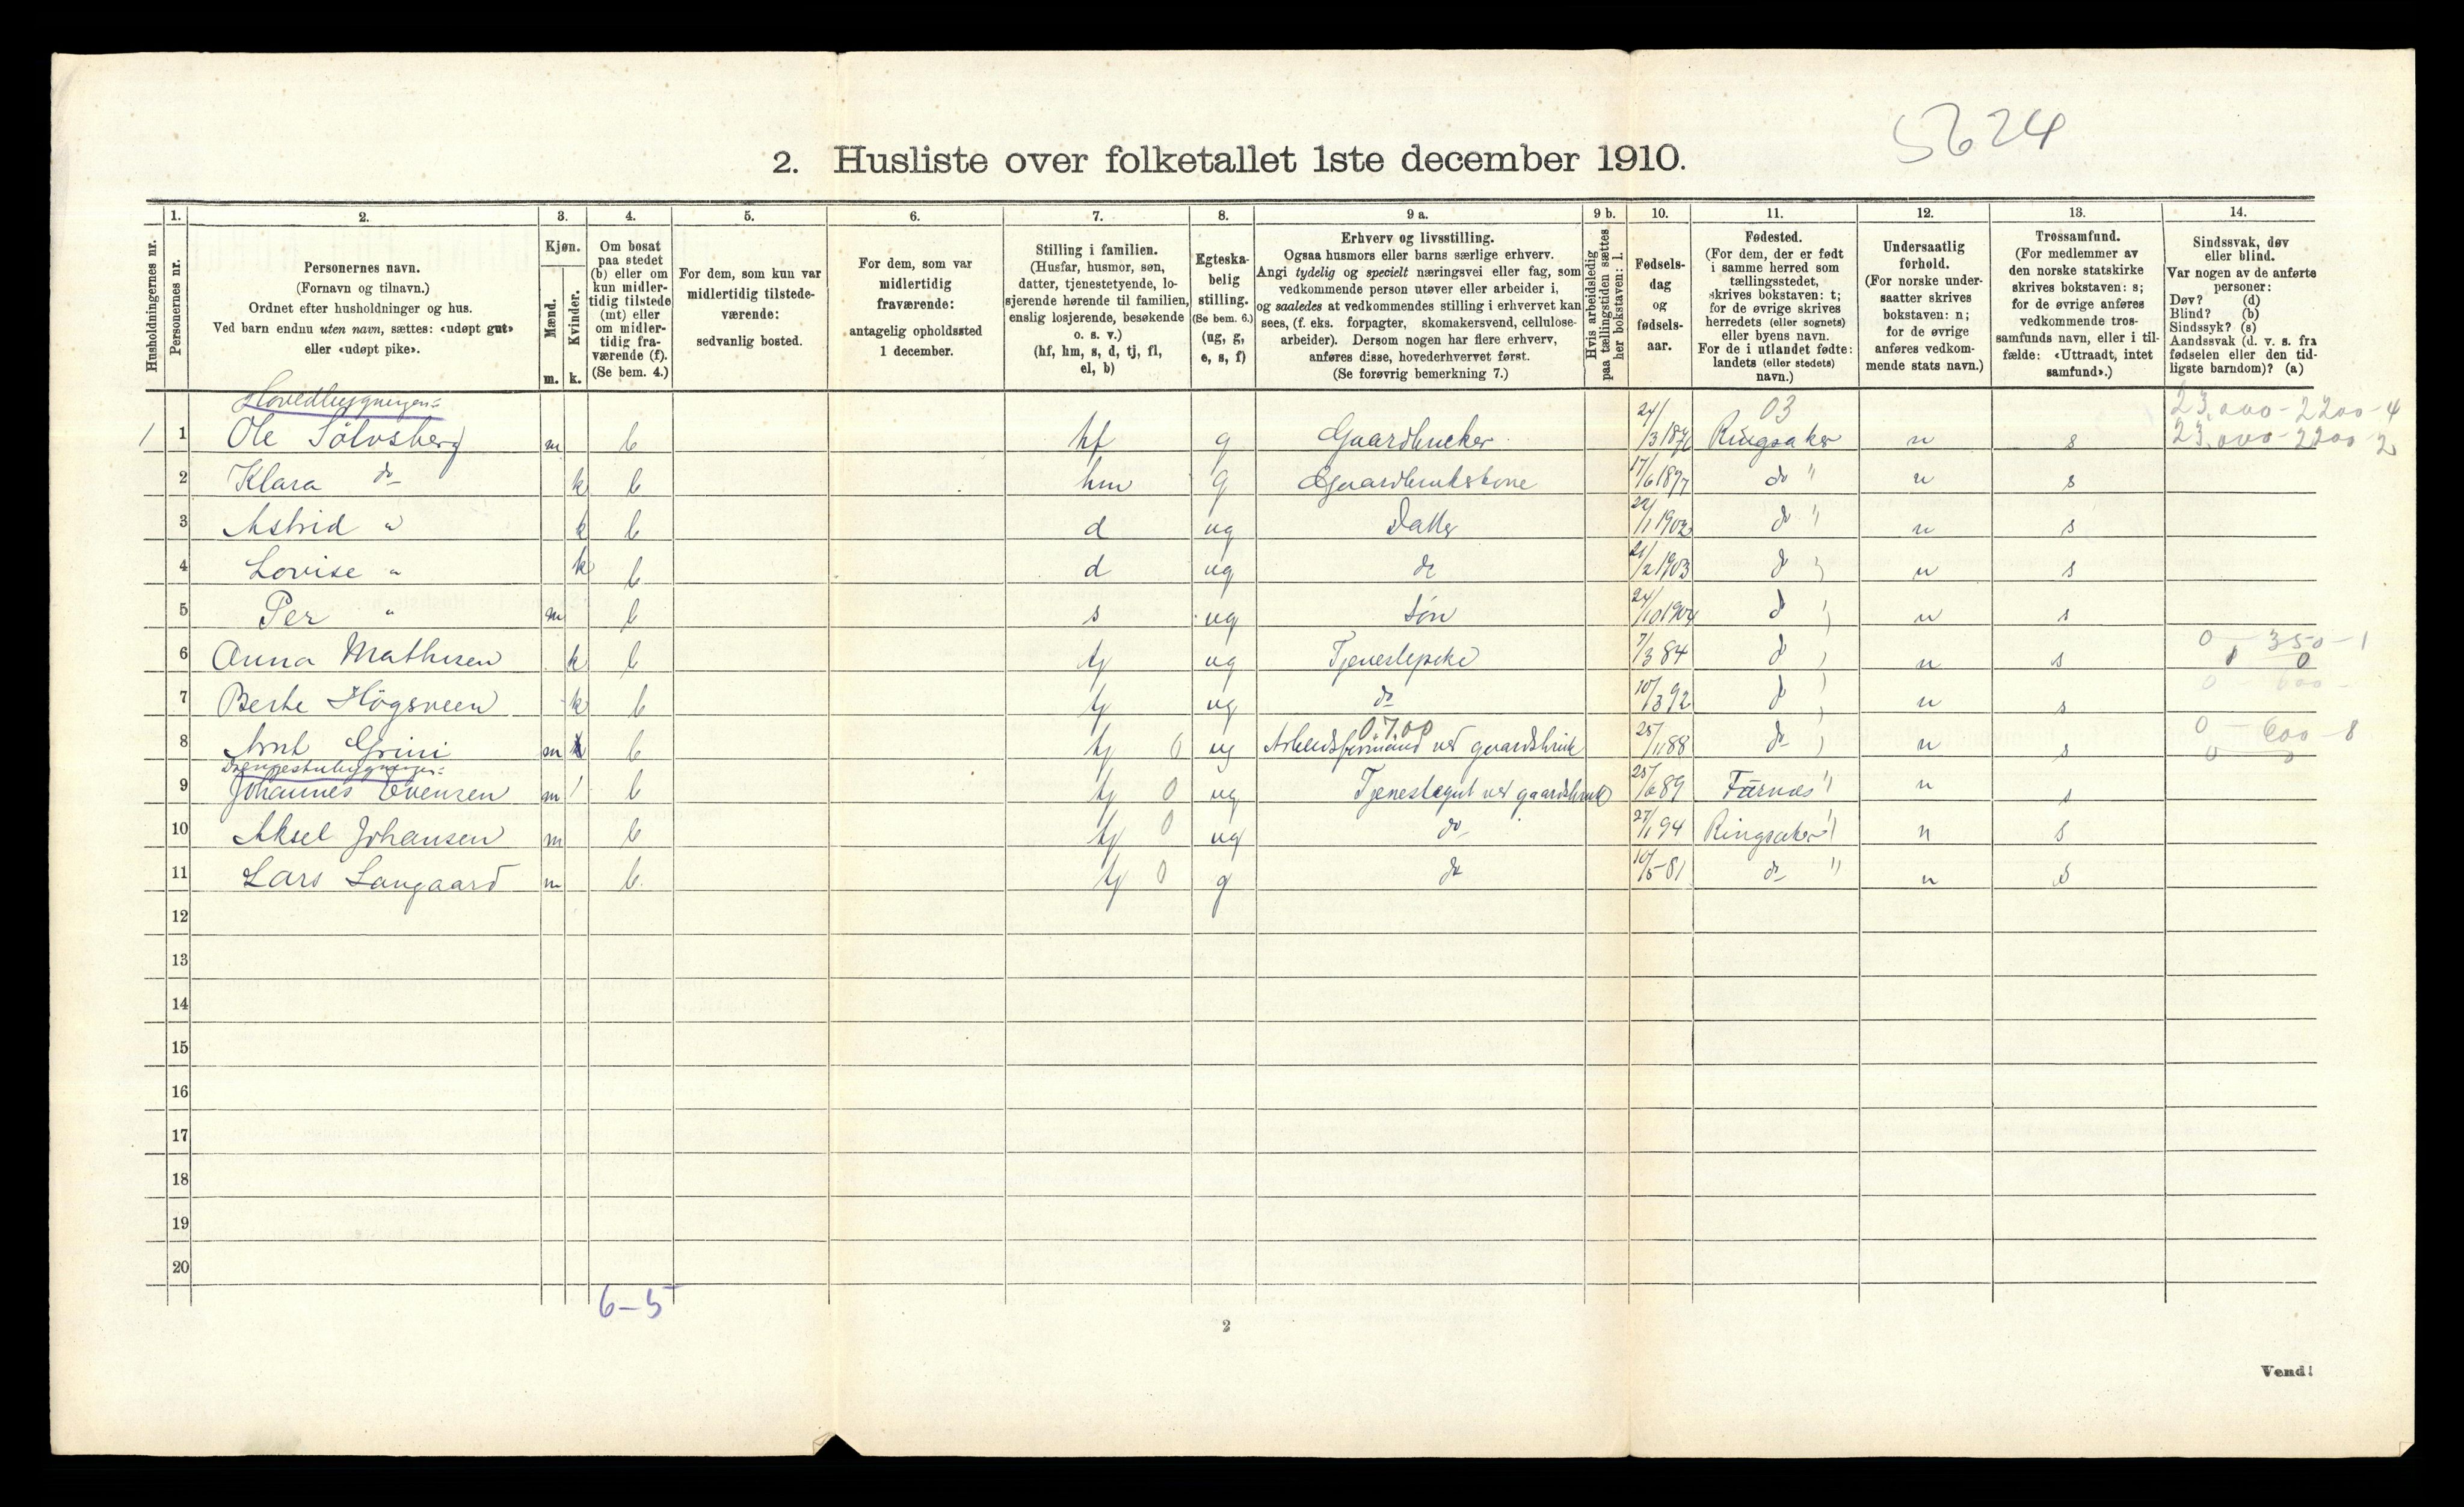 5624
2. Husliste over folketallet 1ste december 1910.
Husholdningernes nr.
1. Personernes nr.
2. Personernes navn.
(Fornavn og tilnavn.)
Ordnet efter husholdninger og hus.
Ved barn endnu uten navn, sættes: «udøpt gut»
eller «udøpt pike».
3. Kjøn.
Mænd. m.
Kvinder. k.
4. Om bosat
paa stedet
(b) eller om
kun midler-
tidig tilstede
(mt) eller
om midler-
tidig fra-
værende (f).
(Se bem. 4.)
5. For dem, som kun var
midlertidig tilstede-
værende:
sedvanlig bosted.
6. For dem, som var
midlertidig
fraværende:
antagelig opholdssted
1 december.
7. Stilling i familien.
(Husfar, husmor, søn,
datter, tjenestetyende, lo-
sjerende hørende til familien,
enslig losjerende, besøkende
o. s. v.)
(hf, hm, s, d, tj, fl,
el, b)
8. Egteska-
belig
stilling.
(Se bem. 6.)
(ug, g,
e, s, f)
9 a. Erhverv og livsstilling.
Ogsaa husmors eller barns særlige erhverv.
Angi tydelig og specielt næringsvei eller fag, som
vedkommende person utøver eller arbeider i,
og saaledes at vedkommendes stilling i erhvervet kan
sees, (f. eks. forpagter, skomakersvend, cellulose-
arbeider). Dersom nogen har flere erhverv,
anføres disse, hovederhvervet først.
(Se forøvrig bemerkning 7.)
9 b. Hvis arbeidsledig
paa tællingstiden sættes
her bokstaven: l.
10. Fødsels-
dag
og
fødsels-
aar.
11. Fødested.
(For dem, der er født
i samme herred som
tællingsstedet,
skrives bokstaven: t;
for de øvrige skrives
herredets (eller sognets)
eller byens navn.
For de i utlandet fødte:
landets (eller stedets)
navn.)
12. Undersaatlig
forhold.
(For norske under-
saatter skrives
bokstaven: n;
for de øvrige
anføres vedkom-
mende stats navn.)
13. Trossamfund.
(For medlemmer av
den norske statskirke
skrives bokstaven: s;
for de øvrige anføres
vedkommende tros-
samfunds navn, eller i til-
fælde: «Uttraadt, intet
samfund».)
14. Sindssvak, døv
eller blind.
Var nogen av de anførte
personer:
Døv? (d)
Blind? (b)
Sindssyk? (s)
Aandssvak (d. v. s. fra
fødselen eller den tid-
ligste barndom)? (a)
Hovedbygningen: 03 23,000-2200-4
1 1 Ole Sölvsberg m b hf g Gaardbruker 24/3 1876 Ringsaker n s 23,000-2200-2
2 Klara do k b hm g Gaardbrukskone 17/6 1877 do " n s
3 Astrid " k b d ug Datter 22/1 1902 do " n s
4 Lovise " k b d ug do 21/2 1903 do n s
5 Per " m b s ug Søn 24/10 1904 do n s
6 Anna Mathisen k b tj ug Tjenestepike 7/3 84 do n s 0 - 350 - 1
0
7 Berte Högsveen k b tj ug do 10/3 92 do n s 0 - 600 -
0700
8 Arnt Grini m b tj 0 ug Arbeidsformand ved gaardsbruk 25/11 88 do n s 0 - 600 - 8
Drengestubygningen:
9 Johannes Evensen m b tj 0 ug Tjenestegut ved gaardsbruk 25/6 89 Furnes " n s
10 Aksel Johansen m b tj 0 ug do 27/1 94 Ringsaker " n s
11 Lars Langaard m b tj 0 g do 10/5-81 do " n s
12
13
14
15
16
17
18
19
20
6-5
2
Vend!